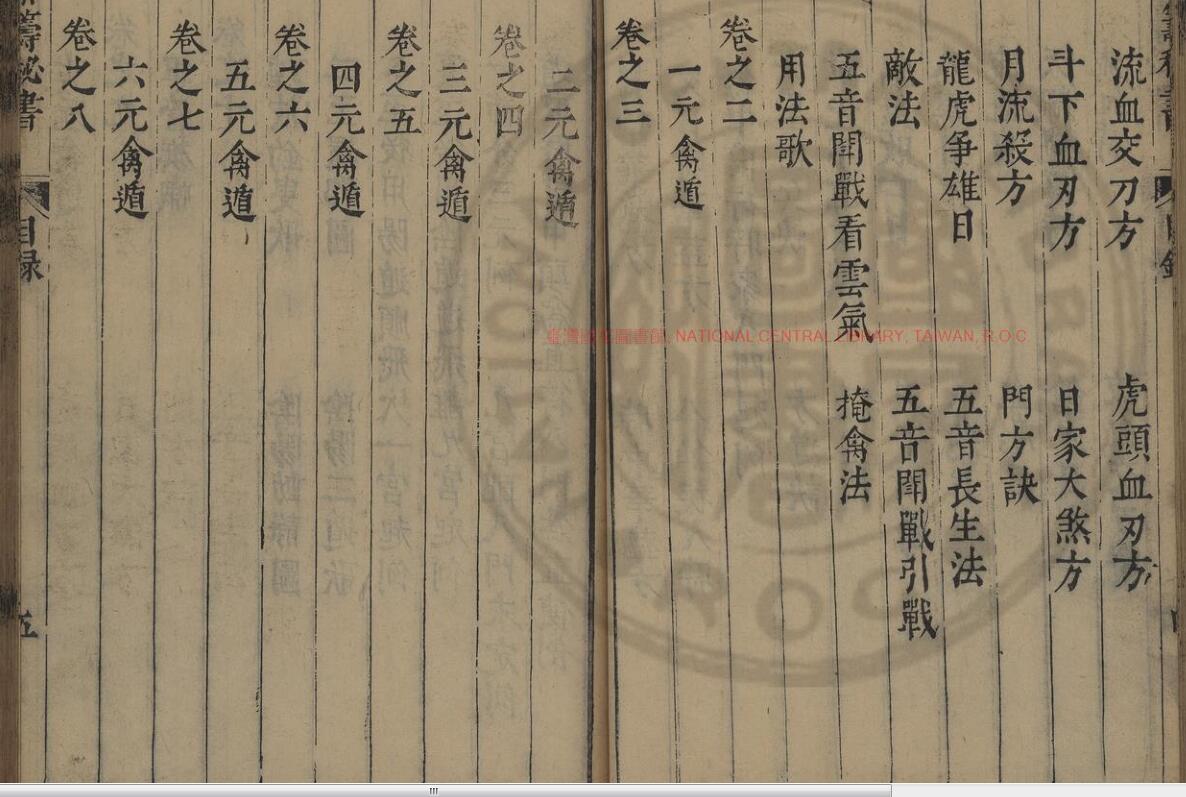 流血交刀方　虎頭血刃方
斗下血刃方　日家大煞方
月流殺方　門方訣
龍虎争雄日　五音長生法
敵法　五音鬪戰引戰
五音鬪戰看雲氣　掩禽法
用法歌
卷之二
一元禽遁
卷之三
二元禽遁
卷之四
三元禽遁
卷之五
四元禽遁
卷之六
五元禽遁
卷之七
六元禽遁
卷之八
籌秘書　目録　五
臺灣國家圖書館, NATIONAL CENTRAL LIBRARY, TAIWAN, R.O.C